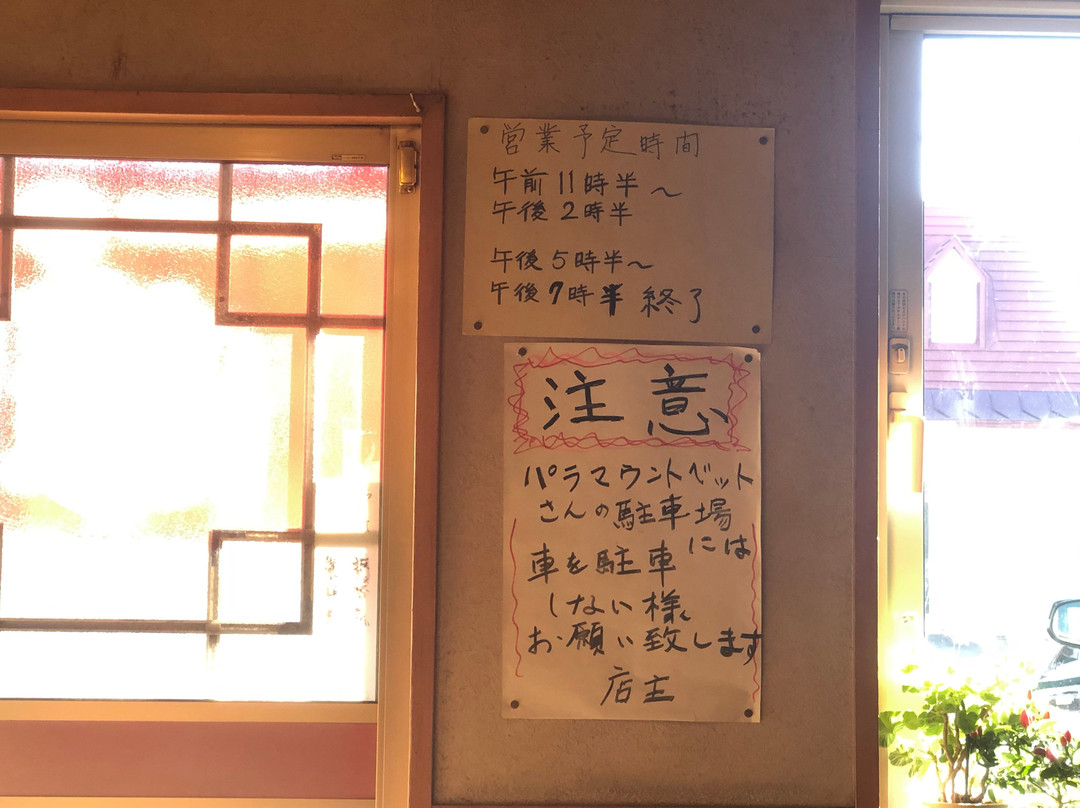 営業予定時間
午前11時半～
午後2時半
午後5時半～
午後7時半 終了
注意
パラマウントベット
さんの駐車場
には
車を駐車
しない様、
お願い致します
店主